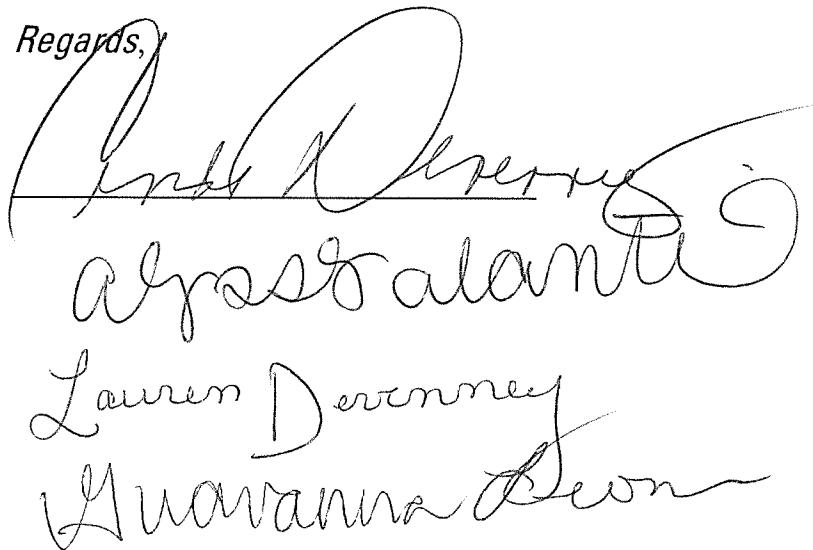 Regards,
Cindi Devenney
Alyss Galanti
Lauren Devenney
Giovanna Leon